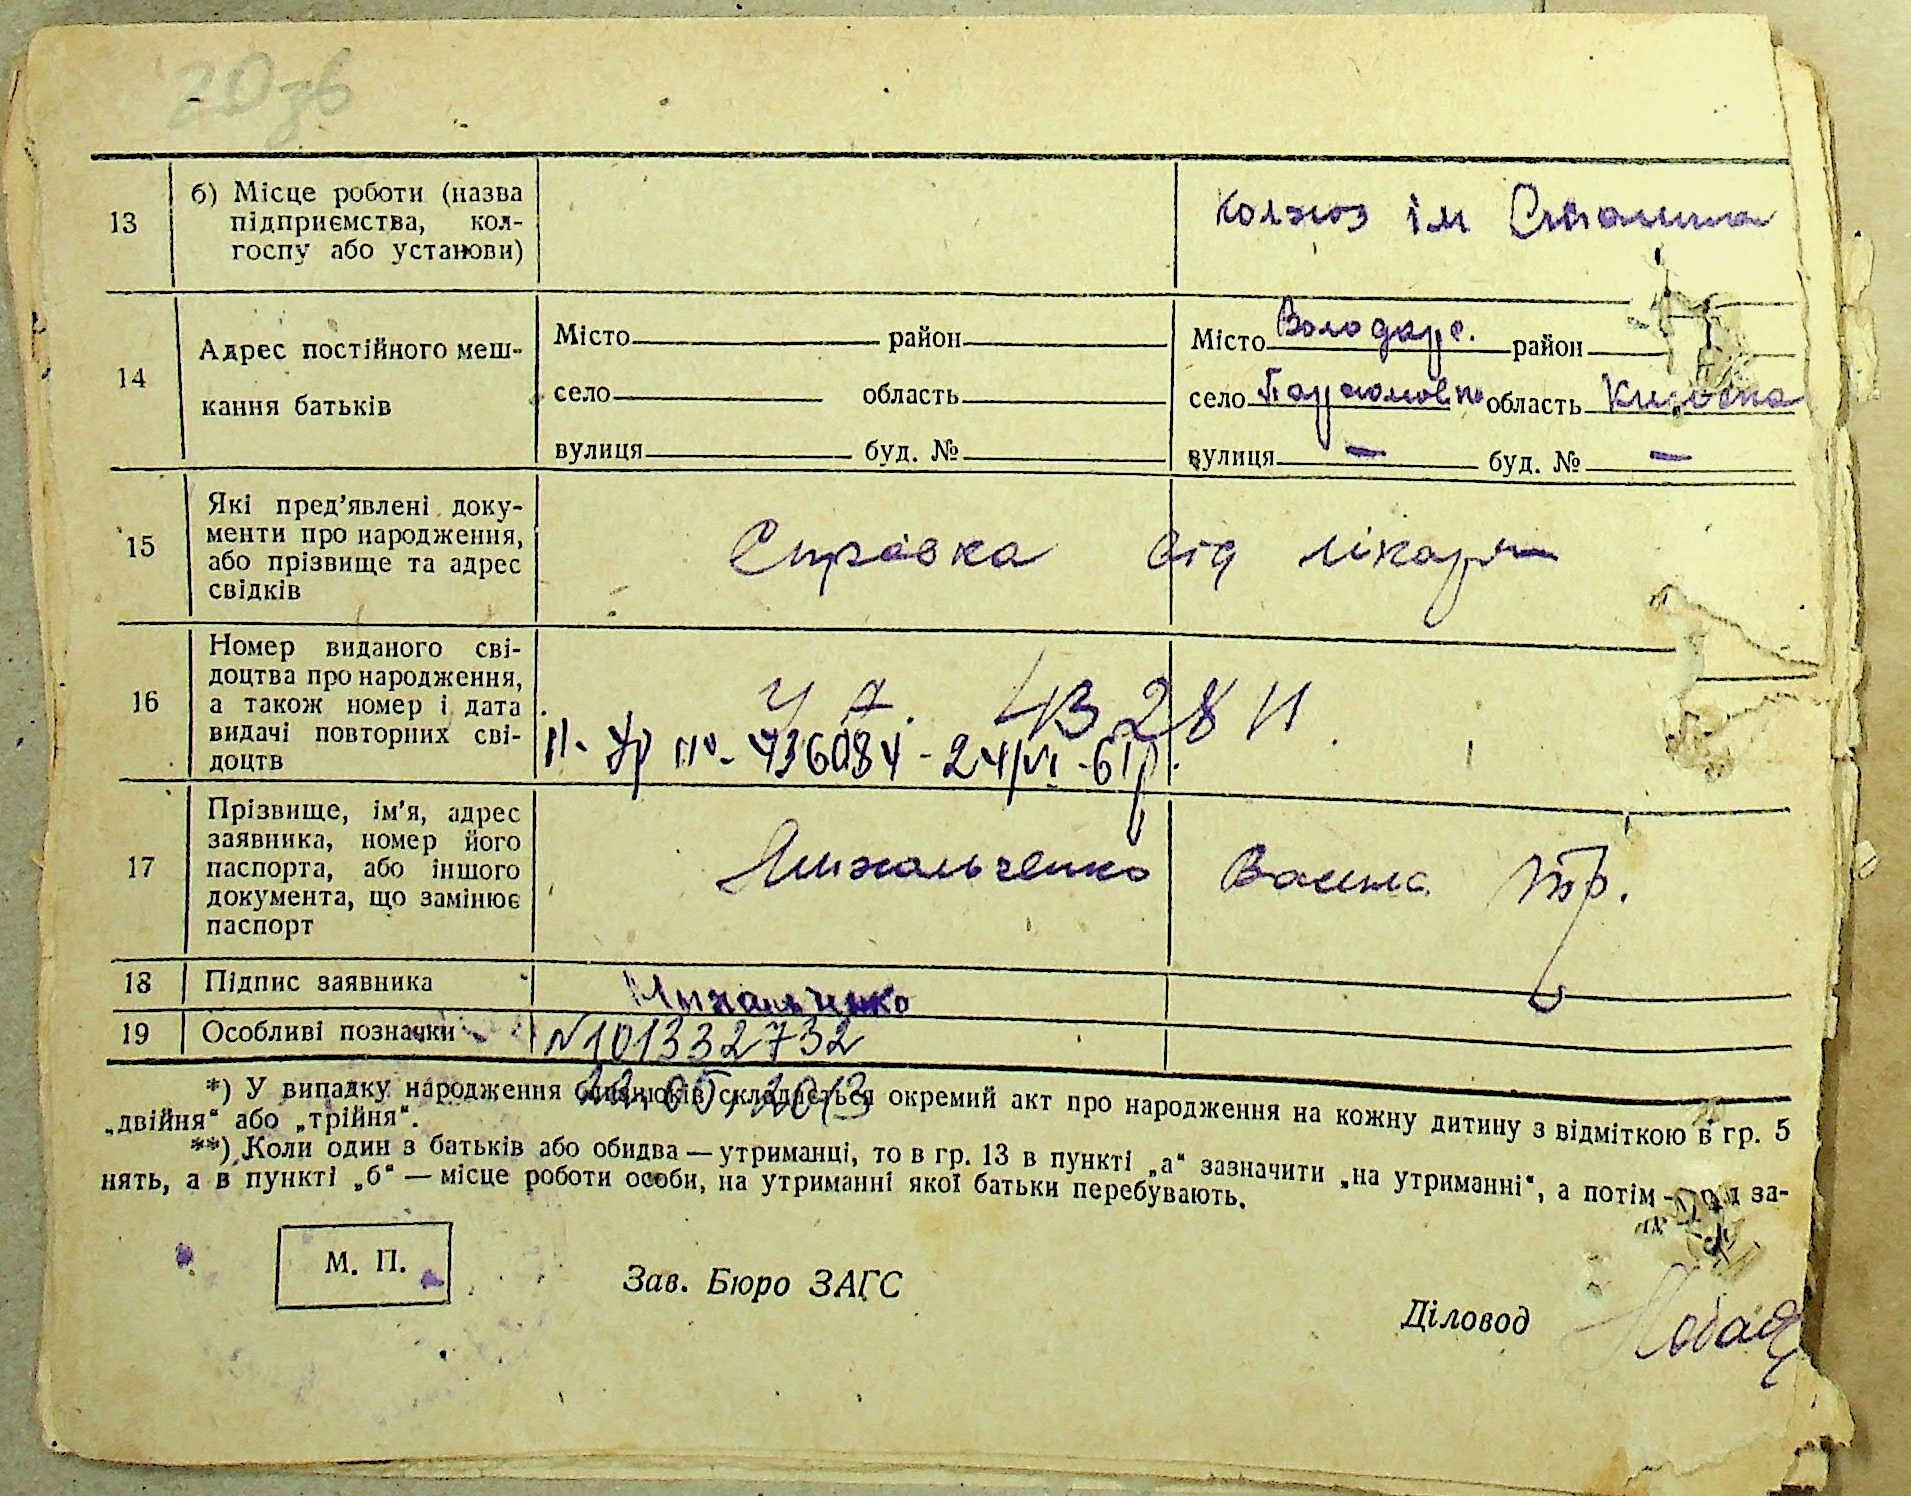 20зв
13 б) Місце роботи (назва підприємства, кол-госпу або установи) колхоз ім Сталина
14 Адрес постійного меш-кання батьків
Місто район Місто Володарс. район
село область село Пархомовка область Київска
вулиця буд. № вулиця — буд. № —
15 Які пред’явлені доку-менти про народження, або прізвище та адрес свідків Справка від лікаря
16 Номер виданого сві-доцтва про народження, а також номер і дата видачі повторних сві-доцтв
УА.
736084 - 24/VI - 61р.
17 Прізвище, ім’я, адрес заявника, номер його паспорта, або іншого документа, що замінює паспорт Михальченко
18 Підпис заявника Михальченко
19 Особливі позначки N101332732
22.05.2013
*) У випадку народження близнюків складається окремий акт про народження на кожну дитину з відміткою в гр. 5
„двійня“ або „трійня“.
**) Коли один з батьків або обидва — утриманці, то в гр. 13 в пункті „а“ зазначити „на утриманні“, а потім — за-
нять, а в пункті „б“ — місце роботи особи, на утриманні якої батьки перебувають.
М. П.
Зав. Бюро ЗАГС
Діловод